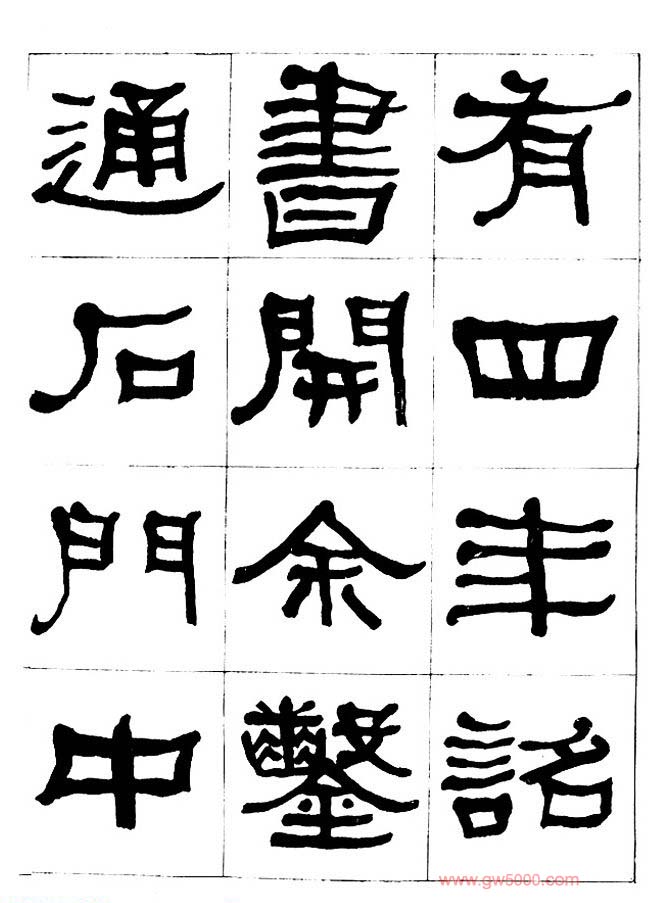 有四年詔
書開余鑿
通石門中
www.gw5000.com